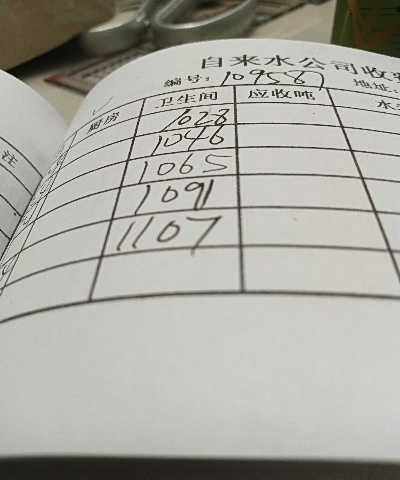 自来水公司收
编号: 109587 地址:
注 厨房 卫生间 应收吨 水
1028
1046
1065
1091
1107